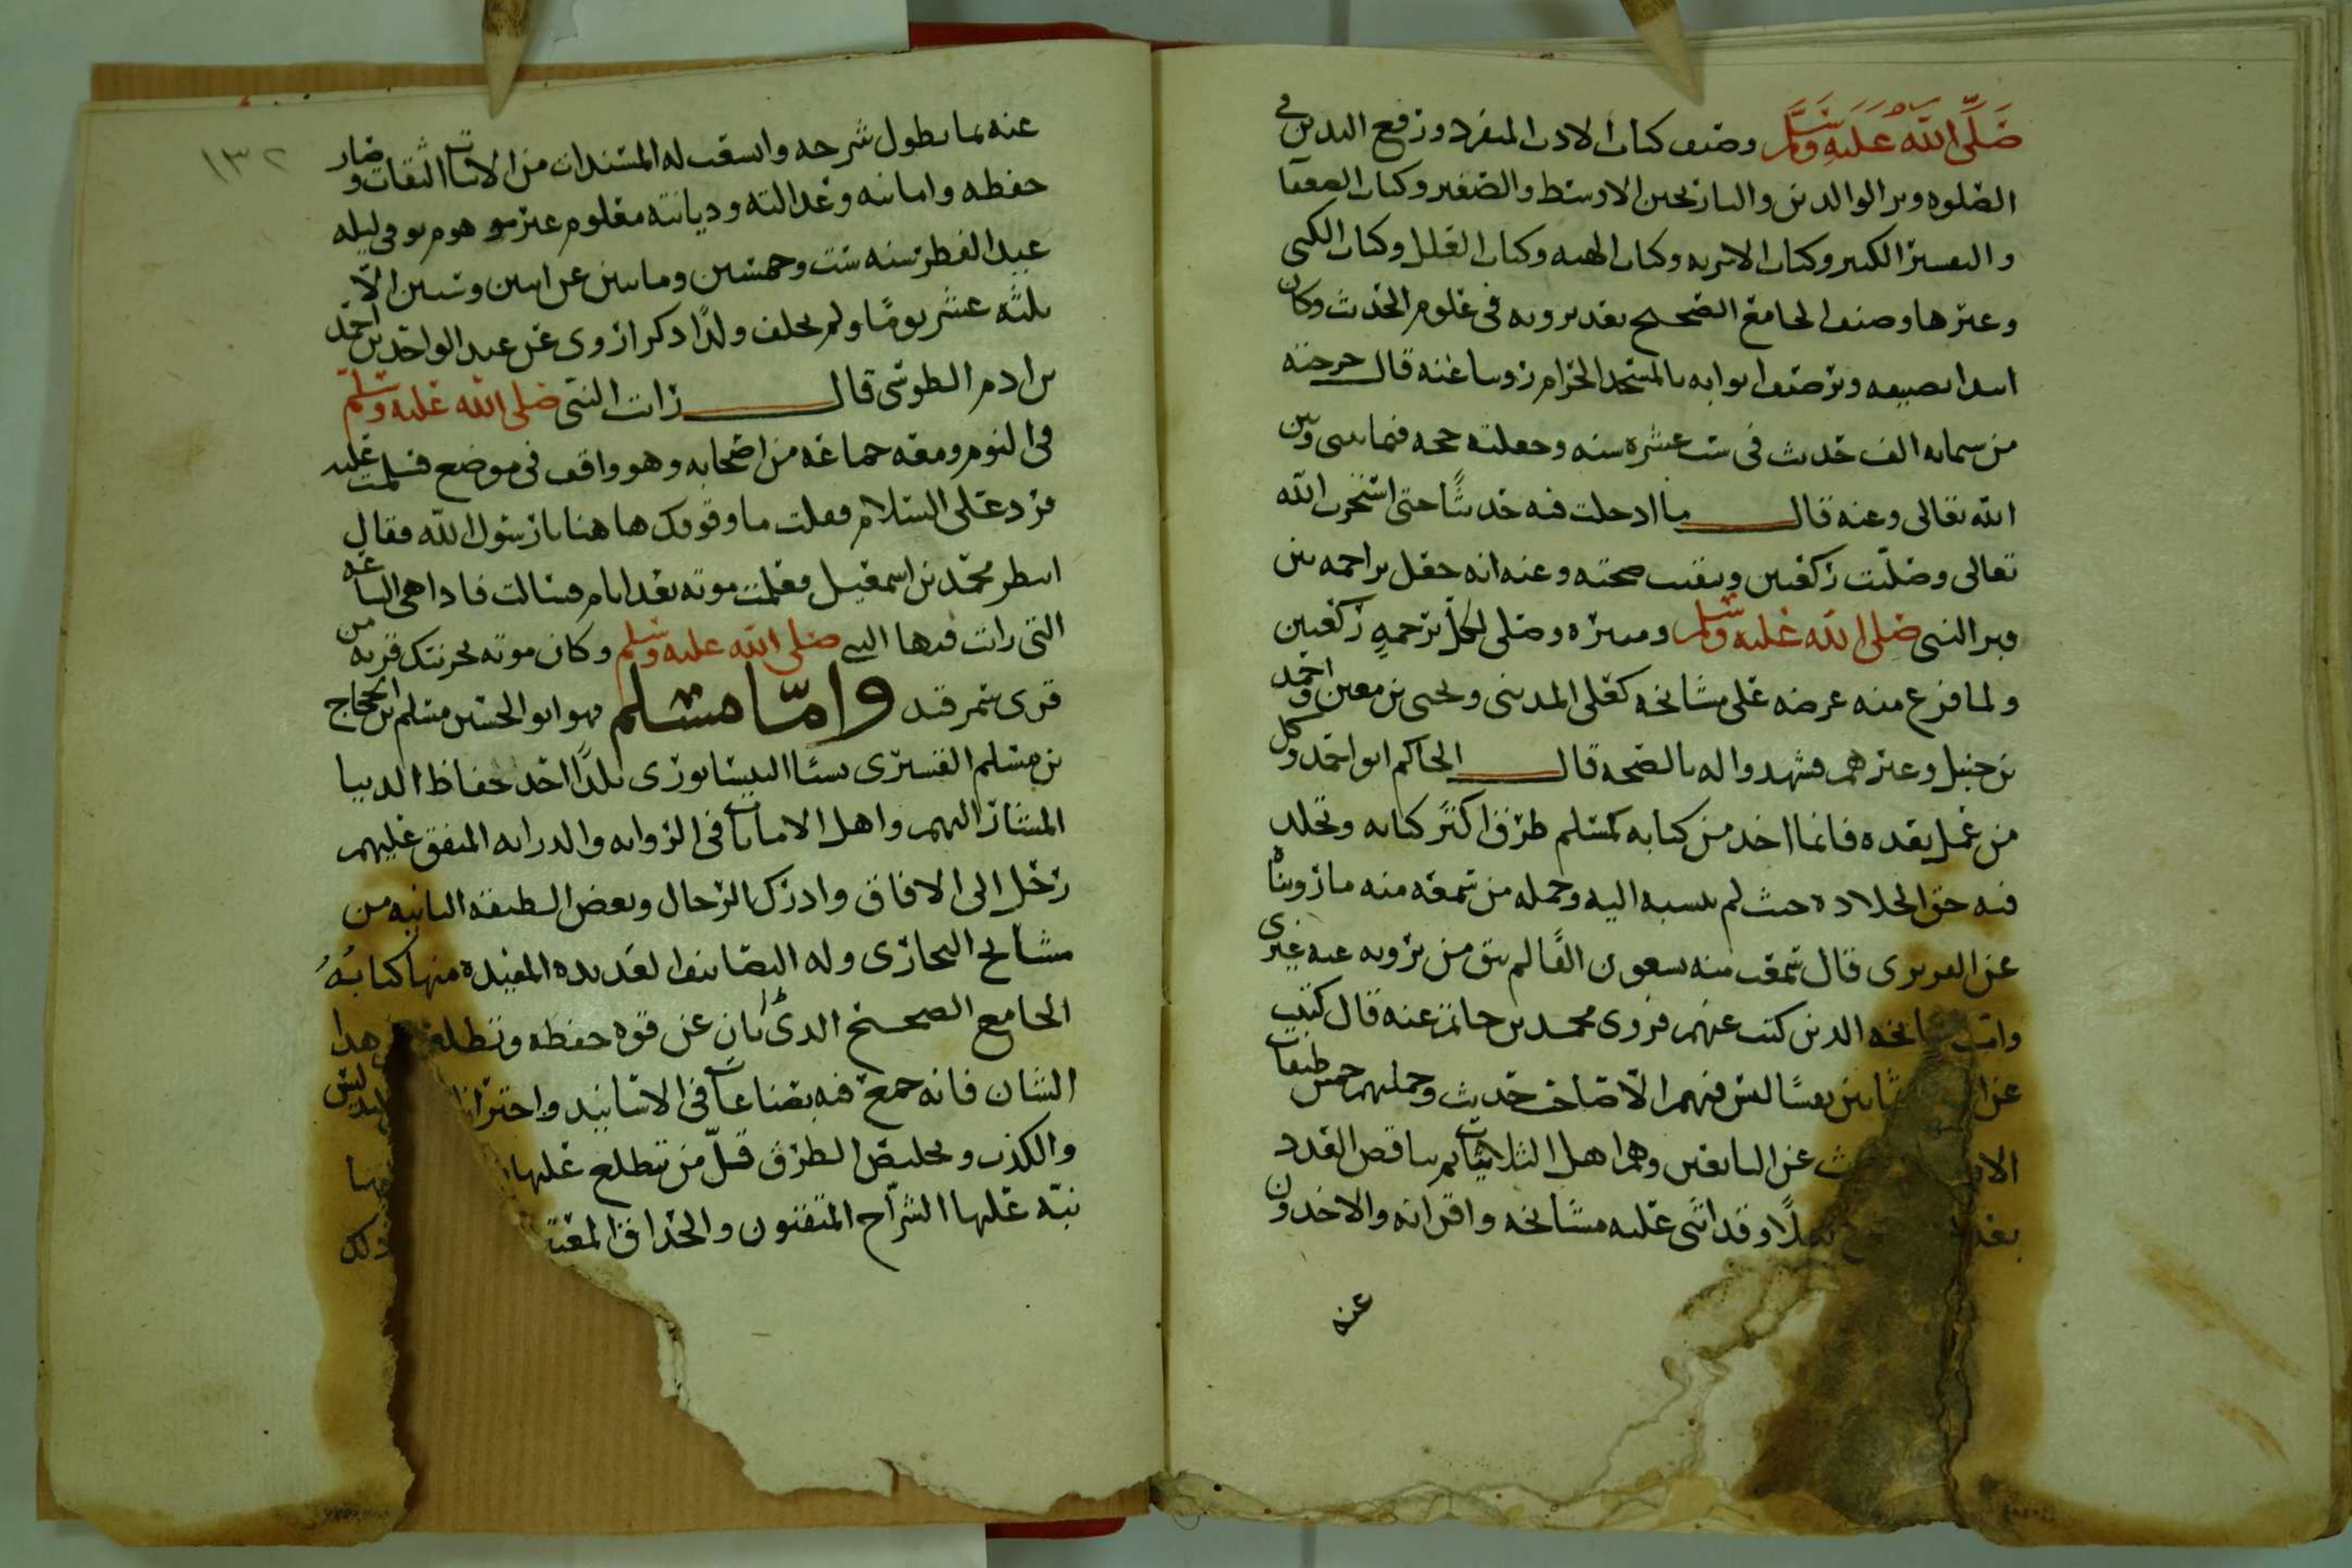 صَلَّى الله عَلَيهِ وَسَلَّم وصنف كتاب الادب المفرد ورفع اليدين في
الصلوه وبر الوالدين والتاريخين الاوسط والصغير وكتاب الضعفا
والتفسير الكبير وكتاب الاشربه وكتاب الهبه وكتاب العلل وكتاب الكنى
وغيرها وصنف الجامع الصحيح بعد بروزه في علوم الحديث وكان
ابتدا تصنيفه وترصيف ابوابه بالمسجد الحرام روينا عنه قال خرجته
من ستمايه الف حديث في ست عشره سنه وجعلته حجه فيما بيني وبين
الله تعالى وعنه قال ما ادخلت فيه حديثًا حتى استخرت الله
تعالى وصلّيت ركعتين وتيقنت صحته وعنه انه جعل تراجمه بين
قبر النبي صلى الله عليه وسلم ومنبره وصلى لكلّ ترجمهٍ ركعتين
ولما فرغ منه عرضه على مشايخه كعلي المديني ويحيى بن معين واحمد
بن حنبل وغيرهم فشهدوا له بالصحه قال الحاكم ابو احمد وكل
من عمل بعده فانما اخذ من كتابه كمسلم فرّق اكثر كتابه وتجلد
فيه حق الجلاده حيث لم ينسبه اليه وجمله من سمعه منه ما رويناه
عن الفربري قال سمعه منه تسعون الفًا لم يبق من يرويه عنه غيري
واما مشايخه الذين كتب عنهم فروى محمد بن حاتم عنه قال كتبت
عن ثمانين نفسًا ليس فيهم الا صاحب حديث وجملتهم خمس طبقات
الاولى عن التابعين وهم اهل الثلاثيات ثم يناقص العدد
بعد رجلًا وقد اثنى عليه مشايخه واقرانه والاخذون
عنه
١٣٢
عنه بما يطول شرحه واتسقت له المسندات من الاثبات الثقات وصار
حفظه وامانته وعدالته وديانته معلوم غير موهوم توفي ليله
عيد الفطر سنه ست وخمسين وماتين عن اثنين وستين الّا
ثلثه عشر يومًا ولم يخلف ولدًا ذكرا روى عن عبد الواحد بن احمد
بن ادم الطوسي قال رايت النبي صلى الله عليه وسلم
في النوم ومعه جماعه من اصحابه وهو واقف في موضع فسلمت عليه
فرد علي السلام فقلت ما وقوفك هاهنا يا رسول الله فقال
انتظر محمّد بن اسمعيل فعلمت موته بعد ايام فسالت فاذا هي الساعه
التي رايت فيها النبي صلى الله عليه وسلم وكان موته بخرتنك قريه من
قرى سمرقند وامّا مسلم فهو ابو الحسين مسلم بن الحجاج
بن مسلم القشيري نسبًا النيسابوري بلدًا احد حفاظ الدنيا
المشار اليهم واهل الامامات في الروايه والدرايه المتفق عليهم
رحل الى الافاق وادرك الرحال وبعض الطبقه الثانيه من
مشايخ البخاري وله التصانيف العديده المفيده منها كتابُهُ
الجامع الصحيح الذي ابان عن قوه حفظه وتضلعه في هذا
الشان فانه جمع فيه بضاعات في الاسانيد واحترازا التدليس
والكذب وتخليص الطرق قلّ من تطلع عليها
نبّه عليها الشراح المتقنون والحذاق المعتنون ولذلك